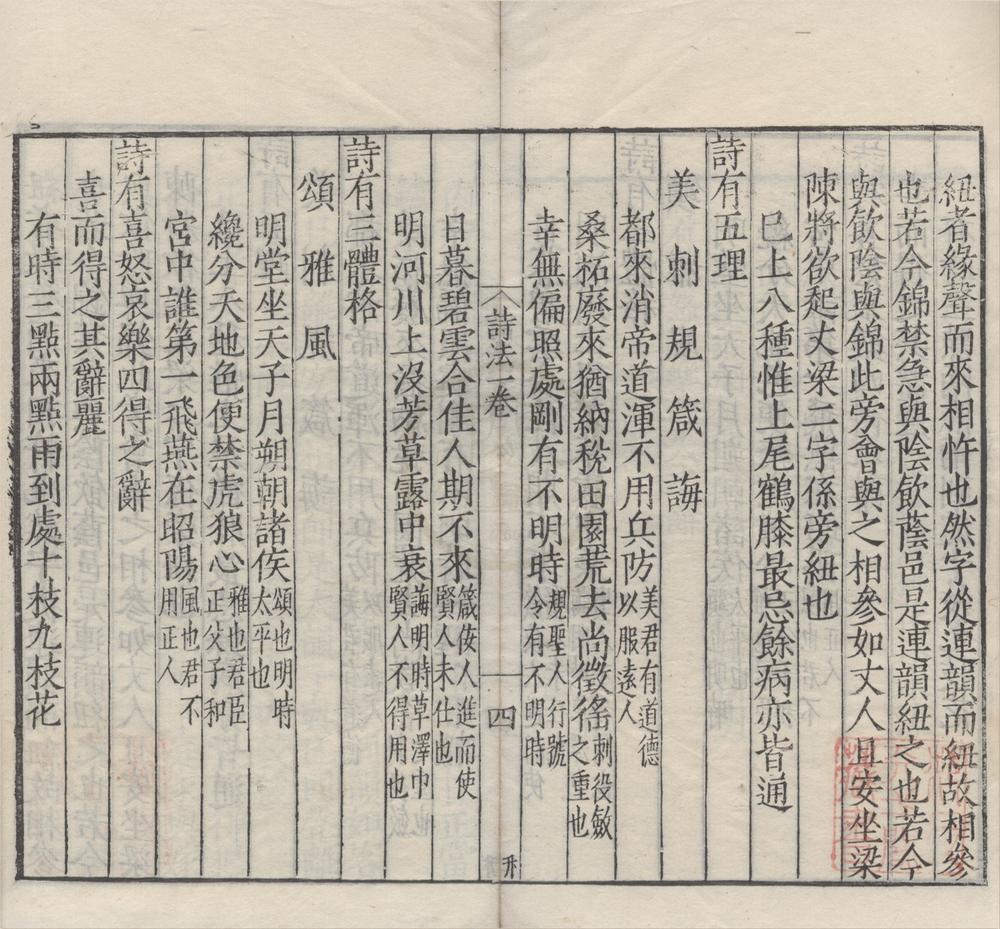 紐者緣聲而來相忤也然字從連韻而紐故相參
也若今錦禁急與陰飲蔭邑是連韻紐之也若今
與飲陰與錦此旁會與之相參如丈人且安坐梁
陳將欲起丈梁二字係旁紐也
已上八種惟上尾鶴膝最忌餘病亦皆通
詩有五理
美 刺 規 箴 誨
都來消帝道渾不用兵防美君有道德以服遠人
桑柘廢來猶納稅田園荒去尚徵徭刺役斂之重也
幸無偏照處剛有不明時規聖人行號令有不明時
詩法一卷
四
升
日暮碧雲合佳人期不來箴佞人進而使賢人未仕也
明河川上沒芳草露中衰誨明時草澤中賢人不得用也
詩有三體格
頌 雅 風
明堂坐天子月朔朝諸侯頌也明時太平也
纔分天地色便禁虎狼心雅也君臣正父子和
宮中誰第一飛燕在昭陽風也君不用正人
詩有喜怒哀樂四得之辭
喜而得之其辭麗
有時三點兩點雨到處十枝九枝花